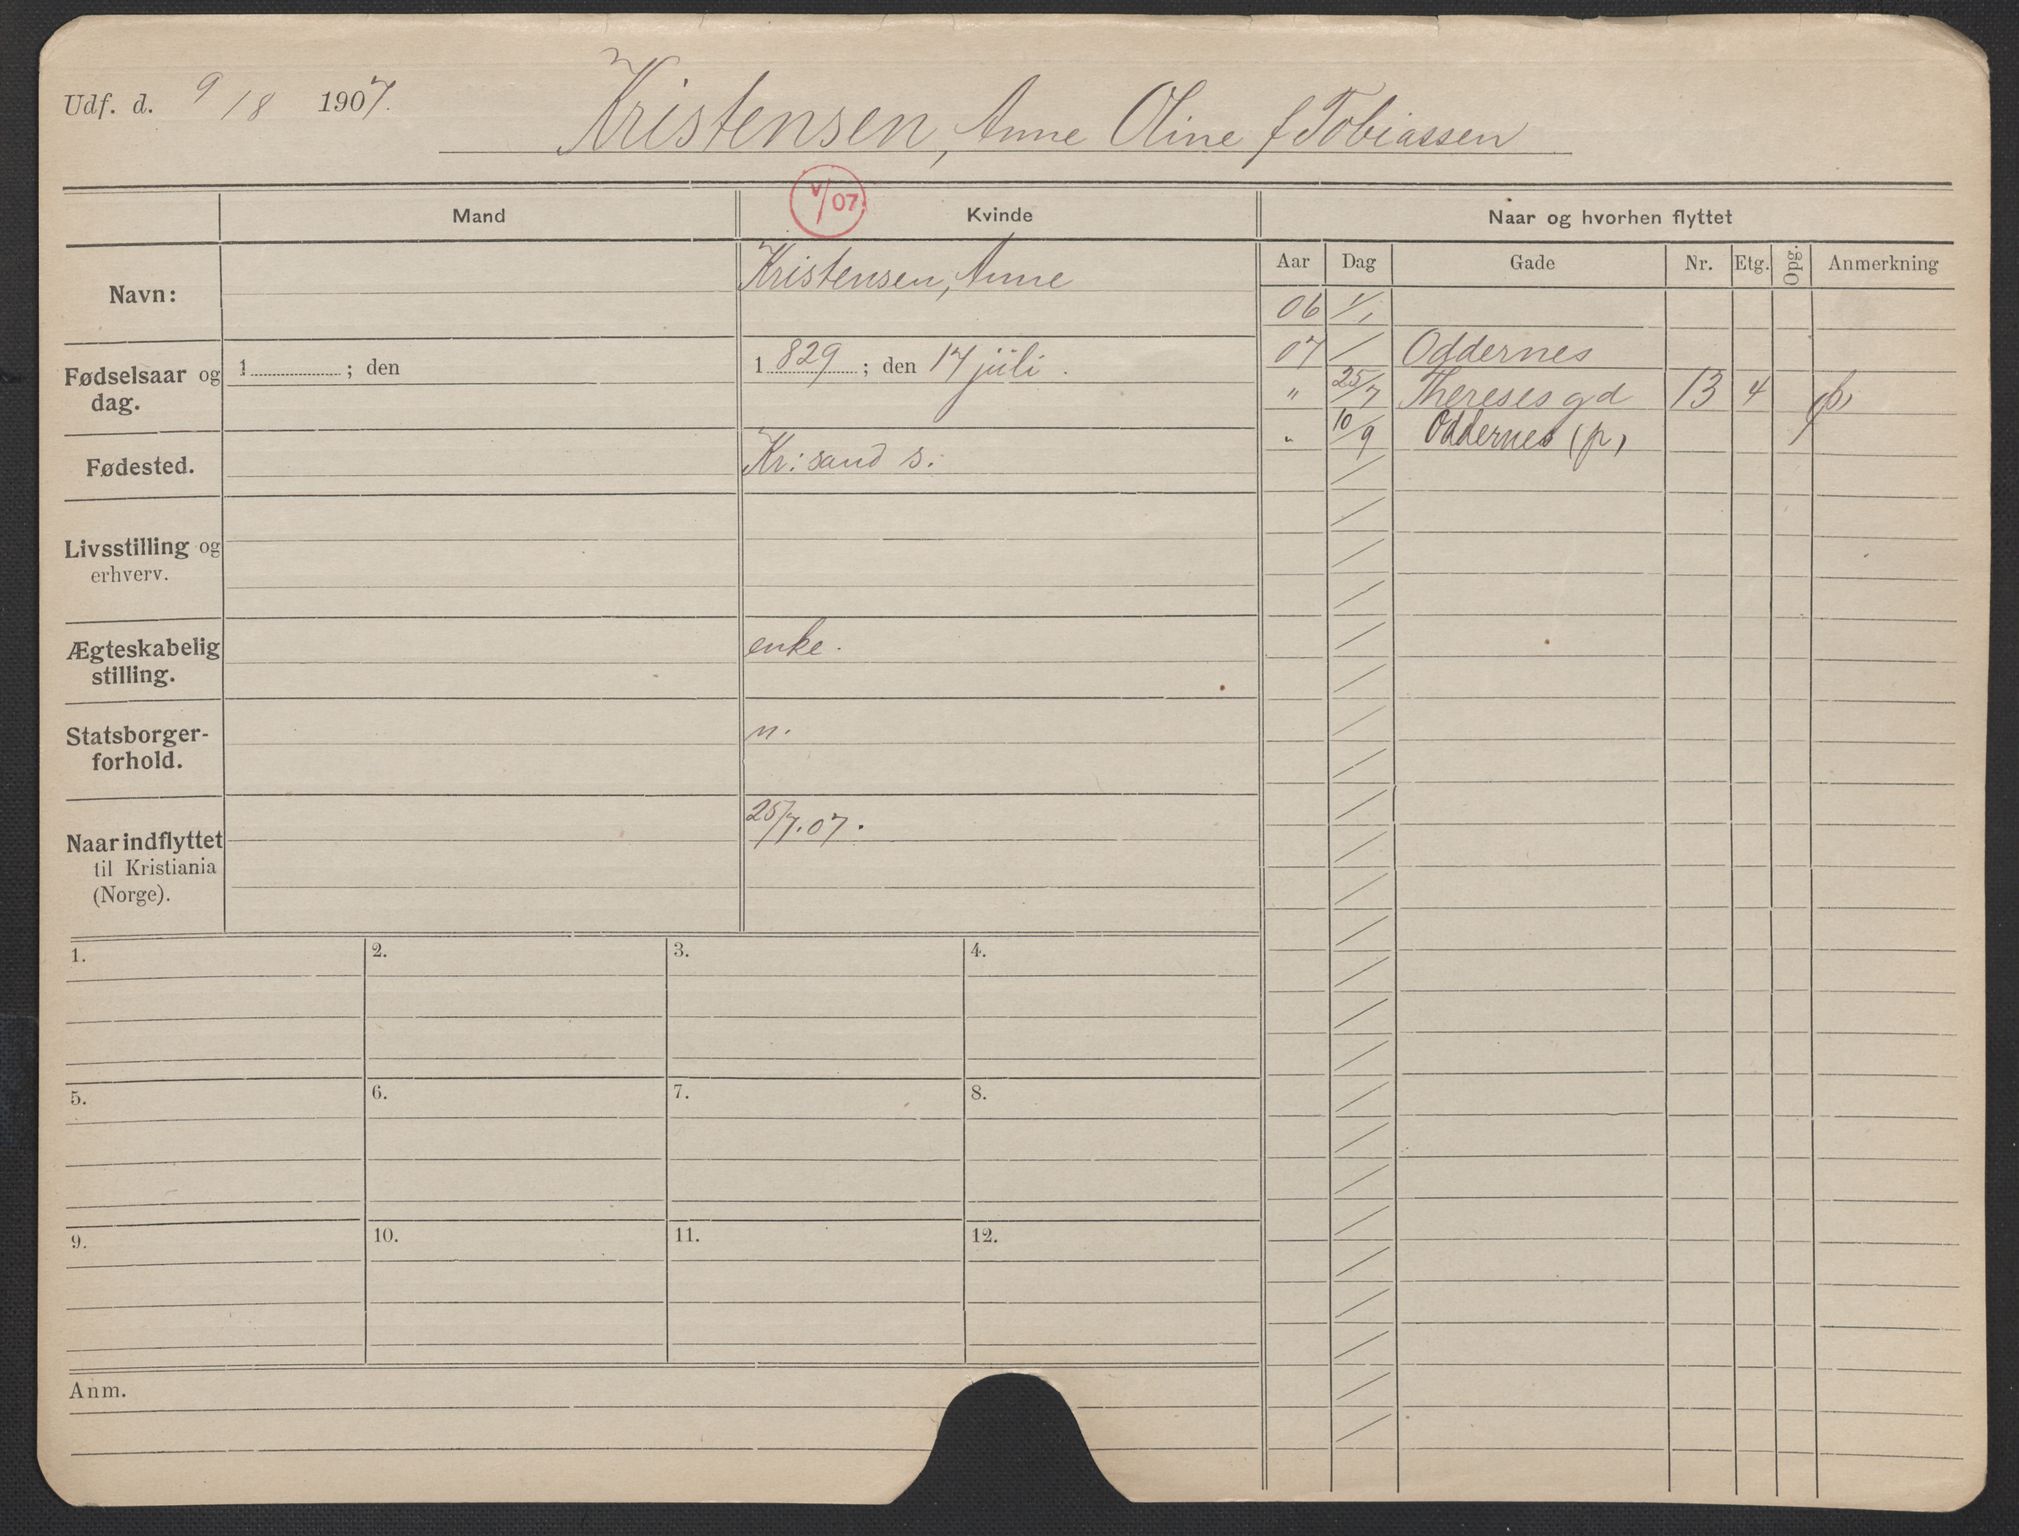 Udf. d. 9/8 1907.
Kristensen, Anne Oline f Tobiassen
V/07.
Mand
Kvinde
Naar og hvorhen flyttet
Aar Dag Gade Nr. Etg. Opg. Anmerkning
Navn:
Kristensen, Anne
06 1/1
07 / Oddernes
Fødselsaar og dag.
1 ; den
1829 ; den 17 juli.
" 25/7 Theresesgd 13 4
" 10/9 Oddernes (p)
Fødested.
Kr:sand s.
Livsstilling og
erhverv.
Ægteskabelig
stilling.
enke.
Statsborger-
forhold.
n.
Naar indflyttet
til Kristiania
(Norge).
25/7.07.
1. 2. 3. 4.
5. 6. 7. 8.
9. 10. 11. 12.
Anm.